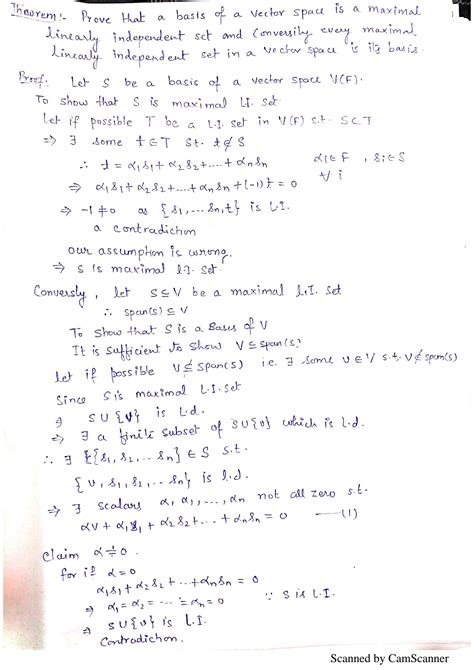 Theorem:- Prove that a basis of a vector space is a maximal
linearly independent set and conversily every maximal
linearly independent set in a vector space is its basis.
Proof:- Let S be a basis of a vector space V(F).
To show that S is maximal LI. set
Let if possible T be a L.I. set in V(F) s.t. S⊂T
⇒ ∃ some t∈T s.t. t∉S
∴ t = α₁s₁ + α₂s₂ + .... + αₙsₙ αᵢ∈F , sᵢ∈S
⇒ α₁s₁ + α₂s₂ + .... + αₙsₙ + (-1)t = 0 ∀ i
⇒ -1≠0 as {s₁, ... sₙ, t} is L.I.
a contradiction
our assumption is wrong.
⇒ S is maximal l.I. set.
Conversly, let S⊆V be a maximal L.I. set
∴ span(s) ⊆ V
To show that S is a Bases of V
It is sufficient to show V⊆span(s)
let if possible V⊈span(s) i.e. ∃ some v∈V s.t. v∉span(s)
Since S is maximal L.I. set
S∪{v} is L.d.
⇒ ∃ a finite subset of S∪{v} which is l.d.
∴ ∃ {s₁, s₂, .. sₙ} ∈ S s.t.
{v, s₁, s₂, .. sₙ} is l.d.
⇒ ∃ scalars α, α₁, ..., αₙ not all zero s.t.
αv + α₁s₁ + α₂s₂ + ... + αₙsₙ = 0 —(1)
Claim α≠0.
for if α = 0
α₁s₁ + α₂s₂ + ... + αₙsₙ = 0
⇒ α₁ = α₂ = ... = αₙ = 0 ∵ S is L.I.
⇒ S∪{v} is L.I.
Contradiction.
Scanned by CamScanner